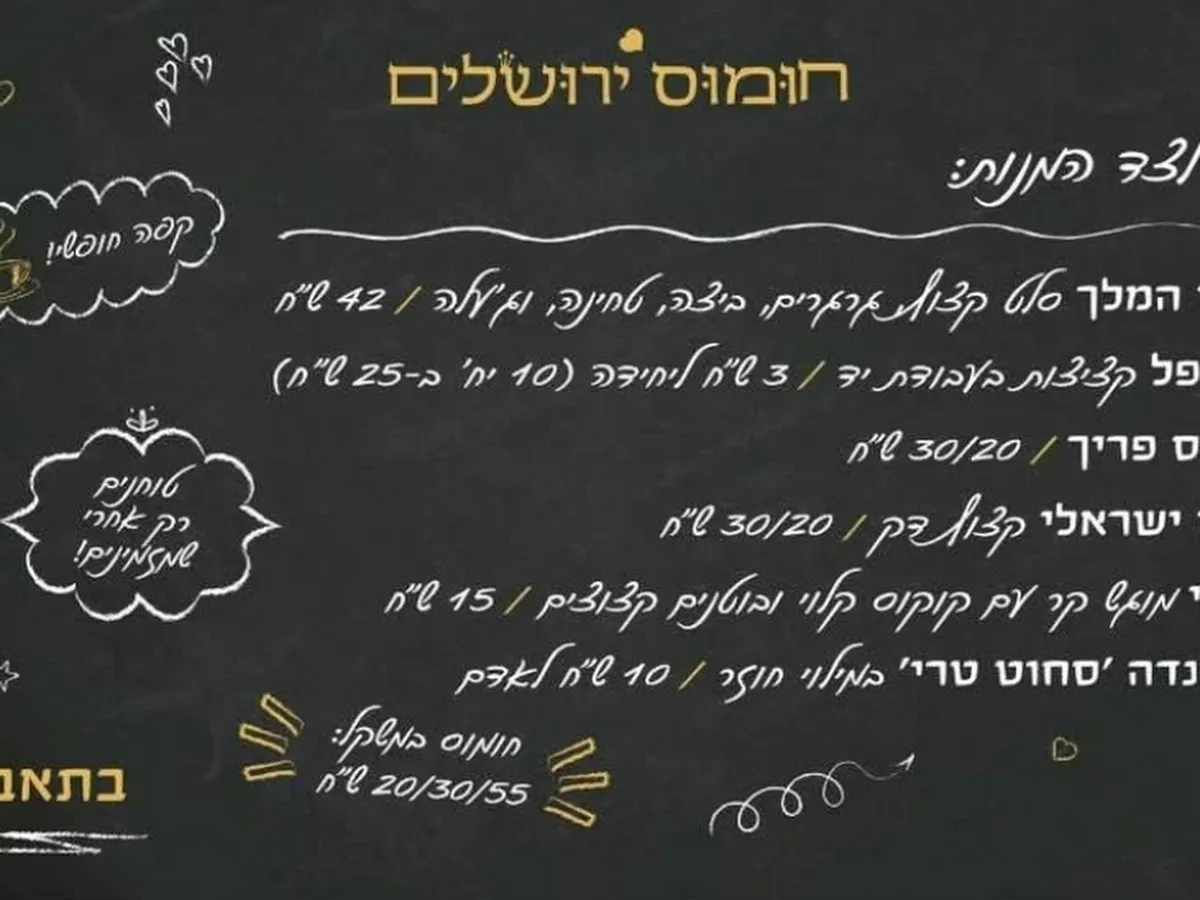 חומוס ירושלים
וצד המנות:
המלך סלט קצוץ, גרגרים, ביצה, טחינה, וג'עלה / 42 ש"ח
פל קציצות בעבודת יד / 3 ש"ח ליחידה (10 יח' ב-25 ש"ח)
ס פריך / 30/20 ש"ח
ישראלי קצוץ דק / 30/20 ש"ח
י מוגש קר עם קוקוס קלוי ובוטנים קצוצים / 15 ש"ח
נדה 'סחוט טרי' במילוי חוזר / 10 ש"ח לאדם
חומוס במשקל:
20/30/55 ש"ח
קפה חופשי!
טוחנים
רק אחרי
שמזמינים!
בתאב